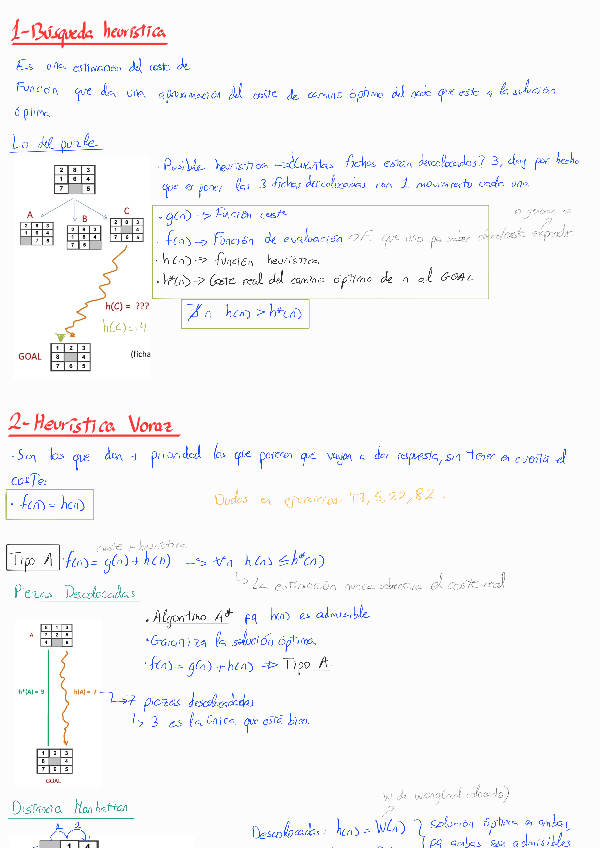 1-Búsqueda heurística
Es una estimación del coste de
Función que da una aproximación del coste de camino óptimo del nodo que este a la solución
óptima
Lo del puzle
• Posible heurística → ¿Cuántas fichas están descolocadas? 3, doy por hecho
que es poner las 3 fichas descolocadas con 1 movimiento cada una
2 8 3
1 6 4
7 5
A
B
C
2 8 3
1 6 4
7 5
2 8 3
1 4
7 6 5
• g(n) → Función coste
• f(n) → Función de evaluación → F. que uso pa saber
• h(n) → función heurística
• h*(n) → Coste real del camino óptimo de n al GOAL
h(C) = ???
h(C) = 4
∄ n h(n) > h*(n)
GOAL
1 2 3
8 4
7 6 5
(ficha
2-Heurística Voraz
• Son las que dan + prioridad las que parecen que vayan a dar respuesta, sin tener en cuenta el
coste:
• f(n) = h(n)
Dudas en ejercicios: 47, 5, 22, 82.
coste + heurística
Tipo A f(n) = g(n) + h(n) → ∀n h(n) ≤ h*(n)
↳ La estimación nunca el coste real
Piezas Descolocadas
• Algoritmo A* pq h(n) es admisible
• Garantiza la solución óptima
• f(n) = g(n) + h(n) → Tipo A
A
h*(A) = 9
h(A) = 7
→ 7 piezas descolocadas
↳ 3 es la única que está bien
1 2 3
8 4
7 6 5
GOAL
Distancia Manhattan
w de wrong (mal colocado)
Descolocadas: h(n) = W(n) } solución óptima en ambas
pq ambas son admisibles
A 2
1 4